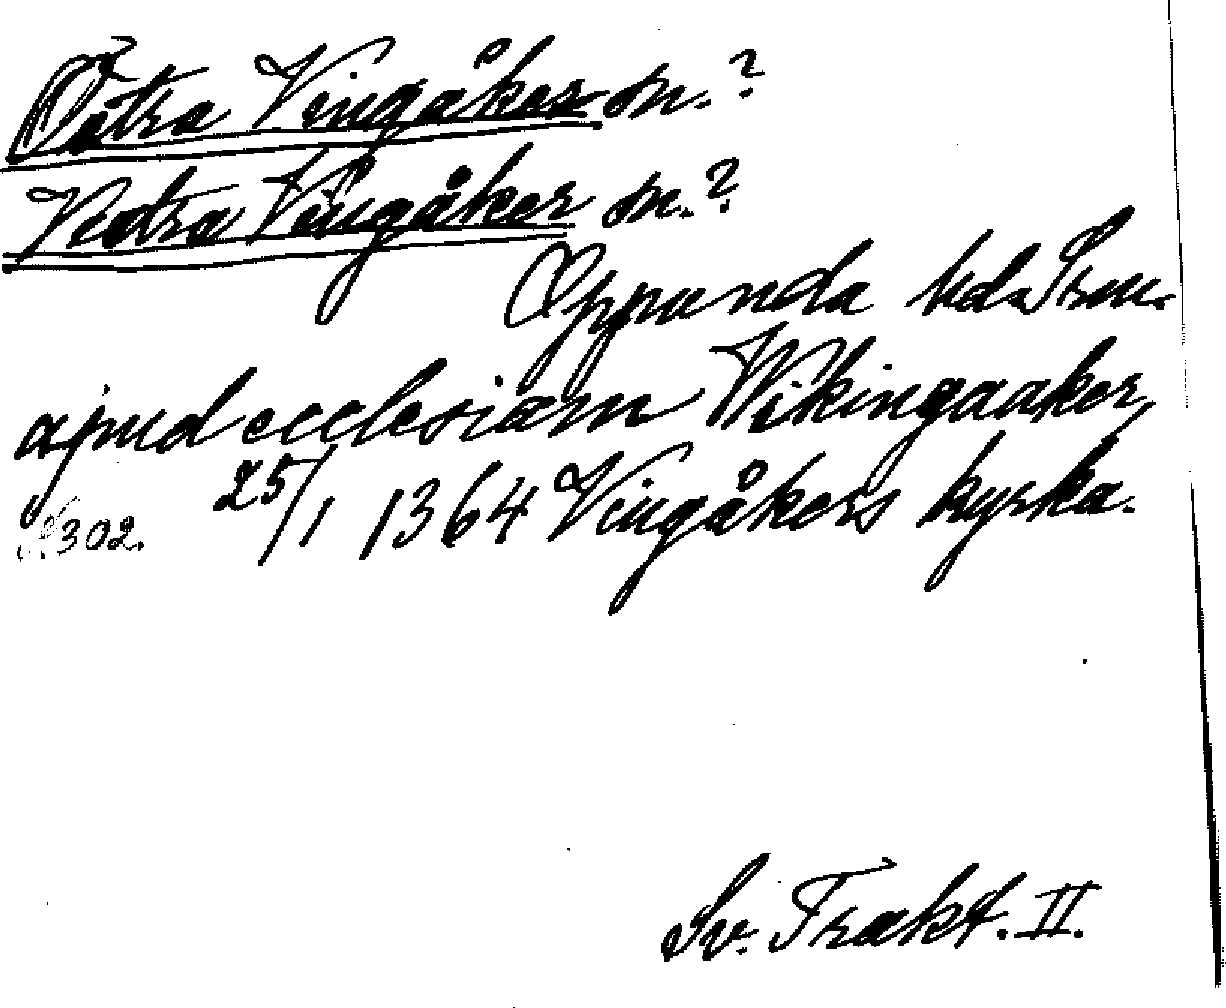 Östra Vingåker sn.?
Västra Vingåker sn.?
Oppunda hd. Srm.
apud ecclesiam Wikingaaker,
25/1 1364 Vingåkers kyrka.
s. 302.
Sv. Trakt. II.